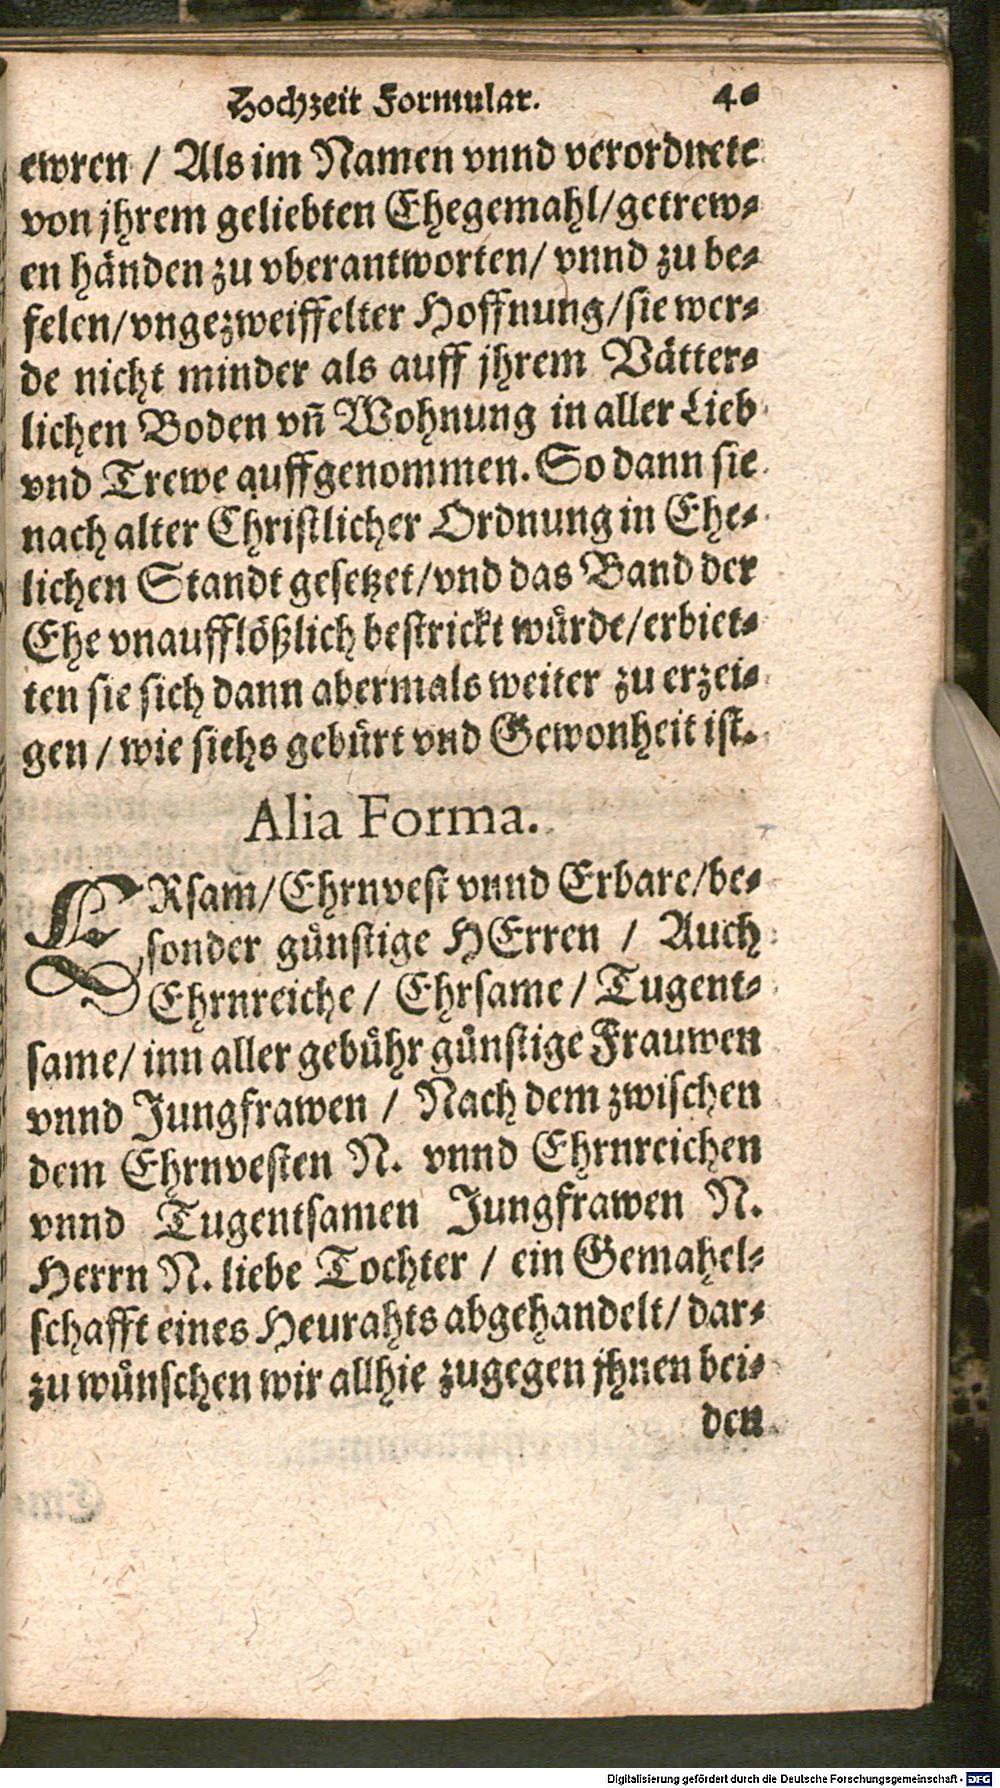 Hochzeit Formular. 40
ewren / Als im Namen vnnd verordnete
von jhrem geliebten Ehegemahl/getrew⸗
en händen zu vberantworten/ vnnd zu be⸗
felen/vngezweiffelter Hoffnung/sie wer⸗
de nicht minder als auff jhrem Vätter⸗
lichen Boden vñ Wohnung in aller Lieb
vnd Trewe auffgenommen. So dann sie
nach alter Christlicher Ordnung in Ehe⸗
lichen Standt gesetzet/vnd das Band der
Ehe vnaufflößlich bestrickt würde/erbiet⸗
ten sie sich dann abermals weiter zu erzei⸗
gen / wie siehs gebürt vnd Gewonheit ist.
Alia Forma.
ERsam/Ehrnvest vnnd Erbare/be⸗
sonder günstige HErren / Auch
Ehrnreiche/ Ehrsame/ Tugent⸗
same/ inn aller gebühr günstige Frauwen
vnnd Jungfrawen / Nach dem zwischen
dem Ehrnvesten N. vnnd Ehrnreichen
vnnd Tugentsamen Jungfrawen N.
Herrn N. liebe Tochter / ein Gemahel⸗
schafft eines Heurahts abgehandelt/ dar⸗
zu wünschen wir allhie zugegen jhnen bei⸗
den
Digitalisierung gefördert durch die Deutsche Forschungsgemeinschaft - DFG